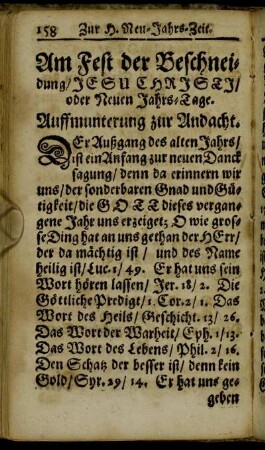 158 Zur H. Neu-Jahrs-Zeit.
Am Fest der Beschnei-
dung/ JESU CHRISTI/
oder Neuen Jahrs-Tage.
Auffmunterung zur Andacht.
DEr Außgang des alten Jahrs/
ist ein Anfang zur neuen Danck
sagung/ denn da erinnern wir
uns/ der sonderbaren Gnad und Gü-
tigkeit/ die GOTT dieses vergan-
gene Jahr uns erzeiget; O wie gros-
se Ding hat an uns gethan der HErr/
der da mächtig ist/ und des Name
heilig ist/ Luc. 1/ 49. Er hat uns sein
Wort hören lassen/ Jer. 18/ 2. Die
Göttliche Predigt/ 1. Cor. 2/ 1. Das
Wort des Heils/ Geschicht. 13/ 26.
Das Wort der Warheit/ Eph. 1/13.
Das Wort des Lebens/ Phil. 2/16.
Den Schatz der besser ist/ denn kein
Gold/ Syr. 29/ 14. Er hat uns ge-
geben